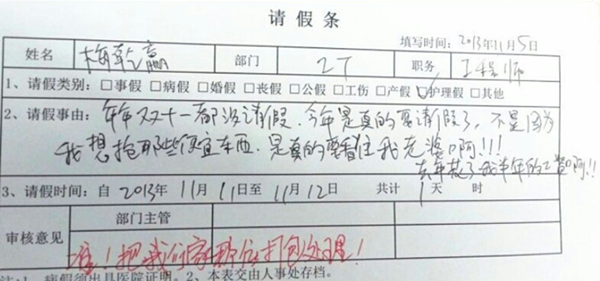 请假条
填写时间：2013年11月5日
姓名 梅乾赢 部门 IT 职务 工程师
1、请假类别：□事假 □病假 □婚假 □丧假 □公假 □工伤 □产假 ☑护理假 □其他
2、请假事由：年年双十一都没请假，今年是真的要请假了，不是因为
我想抢那些便宜东西，是真的要看住我老婆啊！！！
去年花了我半年的工资啊！！
3、请假时间：自2013年11月11日至11月12日 共计1天 时
审核意见 部门主管
准！把我们家那位打包处理！
注：1、病假须出具医院证明。2、本表交由人事处存档。